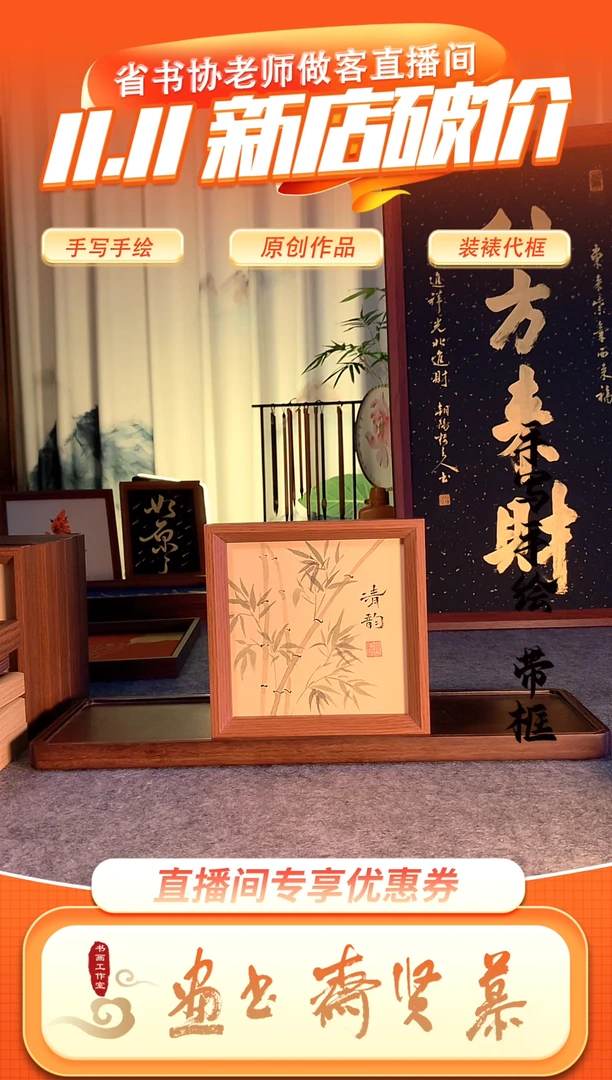 省书协老师做客直播间
11.11 新店破价
手写手绘
原创作品
装裱代框
東來紫氣西來福
方来財
進祥光北進財
清韵
手写手绘 带框
直播间专享优惠券
书画工作室
慕贤斋书画